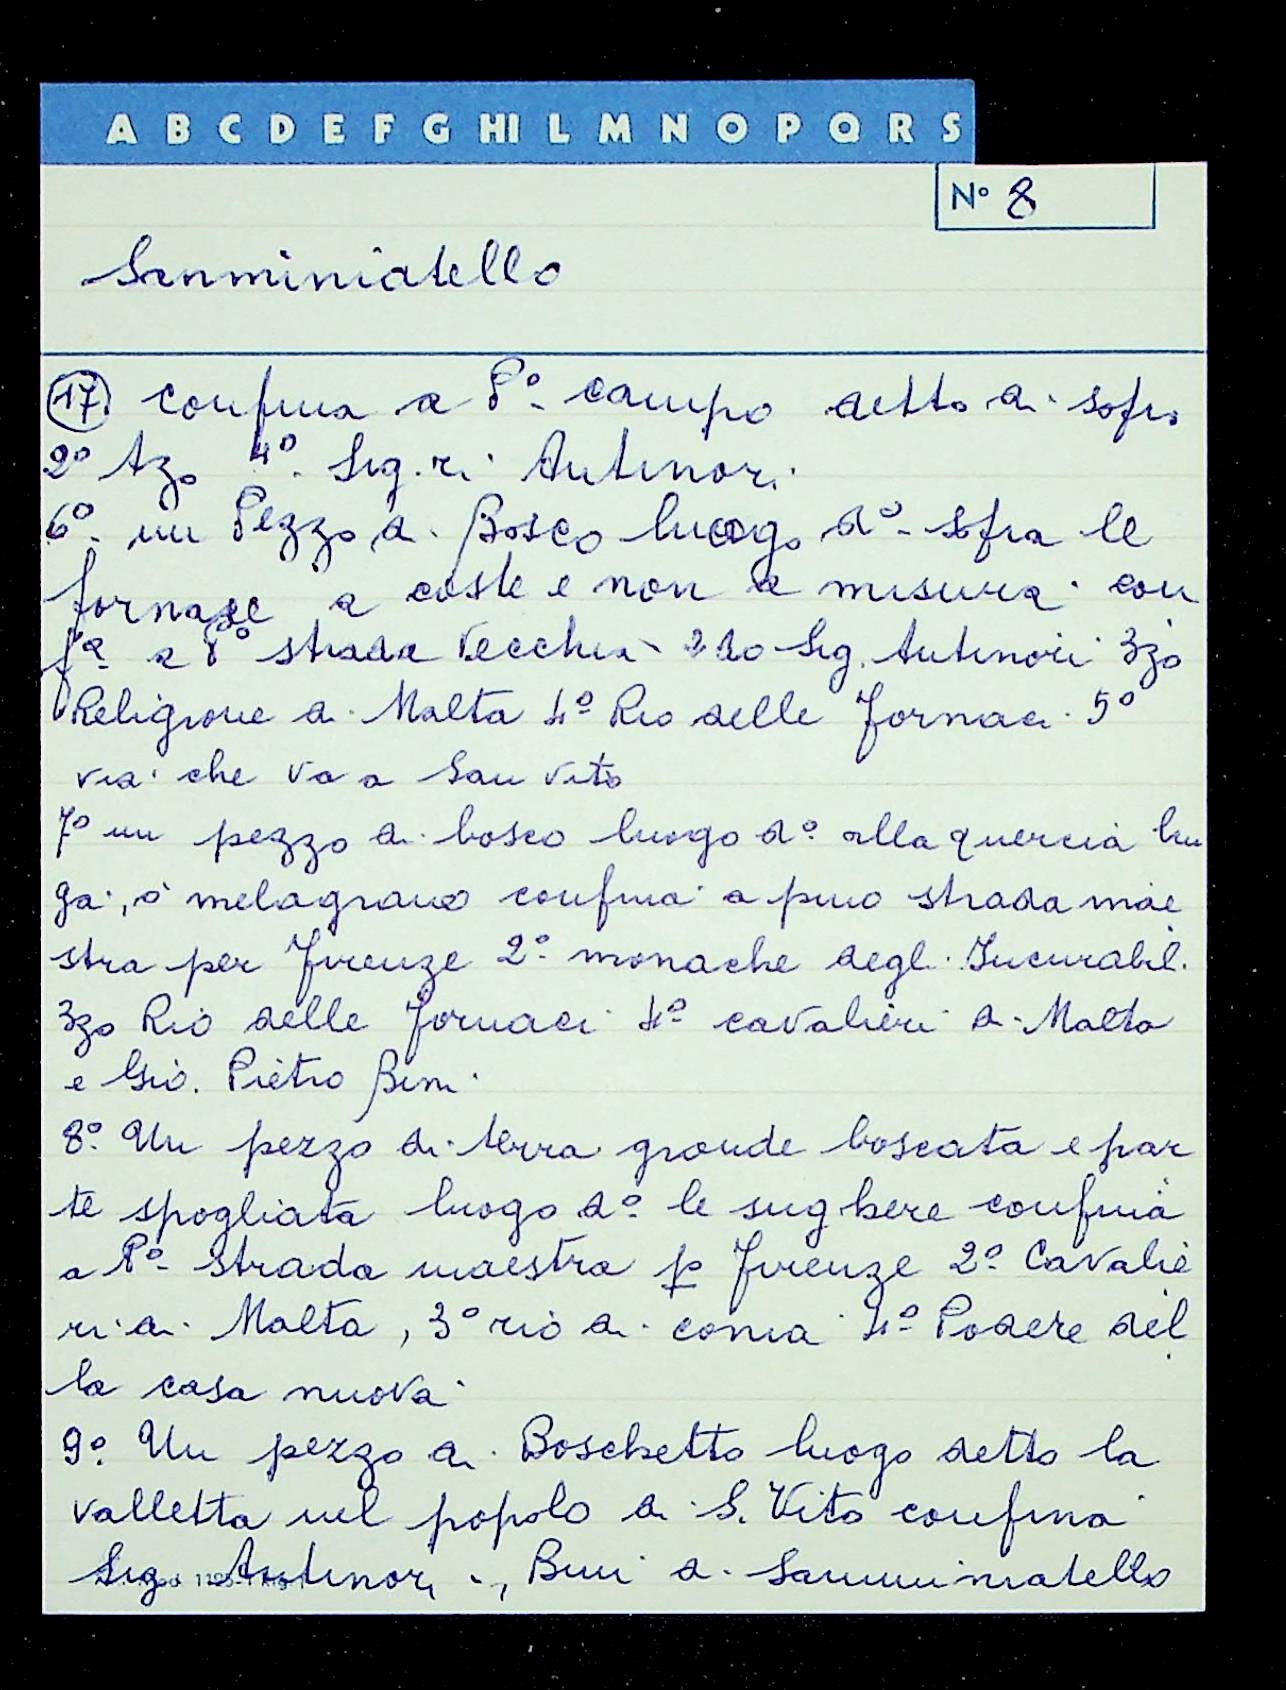 A B C D E F G HI L M N O P Q R S
N° 8
Sanminiatello
17. confina a P.° campo detto di sopra
2° 1/3o 4°. Sig.ri Antinori
6°. un Pezzo di Bosco luogo d°. sopra le
fornace a coste e non a misura con
f.a a P° strada vecchia 2do Sig. Antinori 3zo
Religione di Malta 4° Rio delle Fornaci 5°
via che va a San Vito
7° un pezzo di bosco luogo d°. alla quercia lun
ga, o melagrano confina a pmo strada mae
stra per Firenze 2°. monache degl. Incurabil.
3zo Rio delle Fornaci 4° cavalieri di Malta
e Gio. Pietro Bini
8°. Un pezzo di terra grande boscata e par
te spogliata luogo d°. le sughere confina
a P°. Strada maestra p Firenze 2° Cavalie
ri di Malta, 3° rio di 4° Podere del
la casa nuova
9°. Un pezzo di Boschetto luogo detto la
valletta nel popolo di S. Vito confina
Sig. Antinori, Bini di Sanminiatello